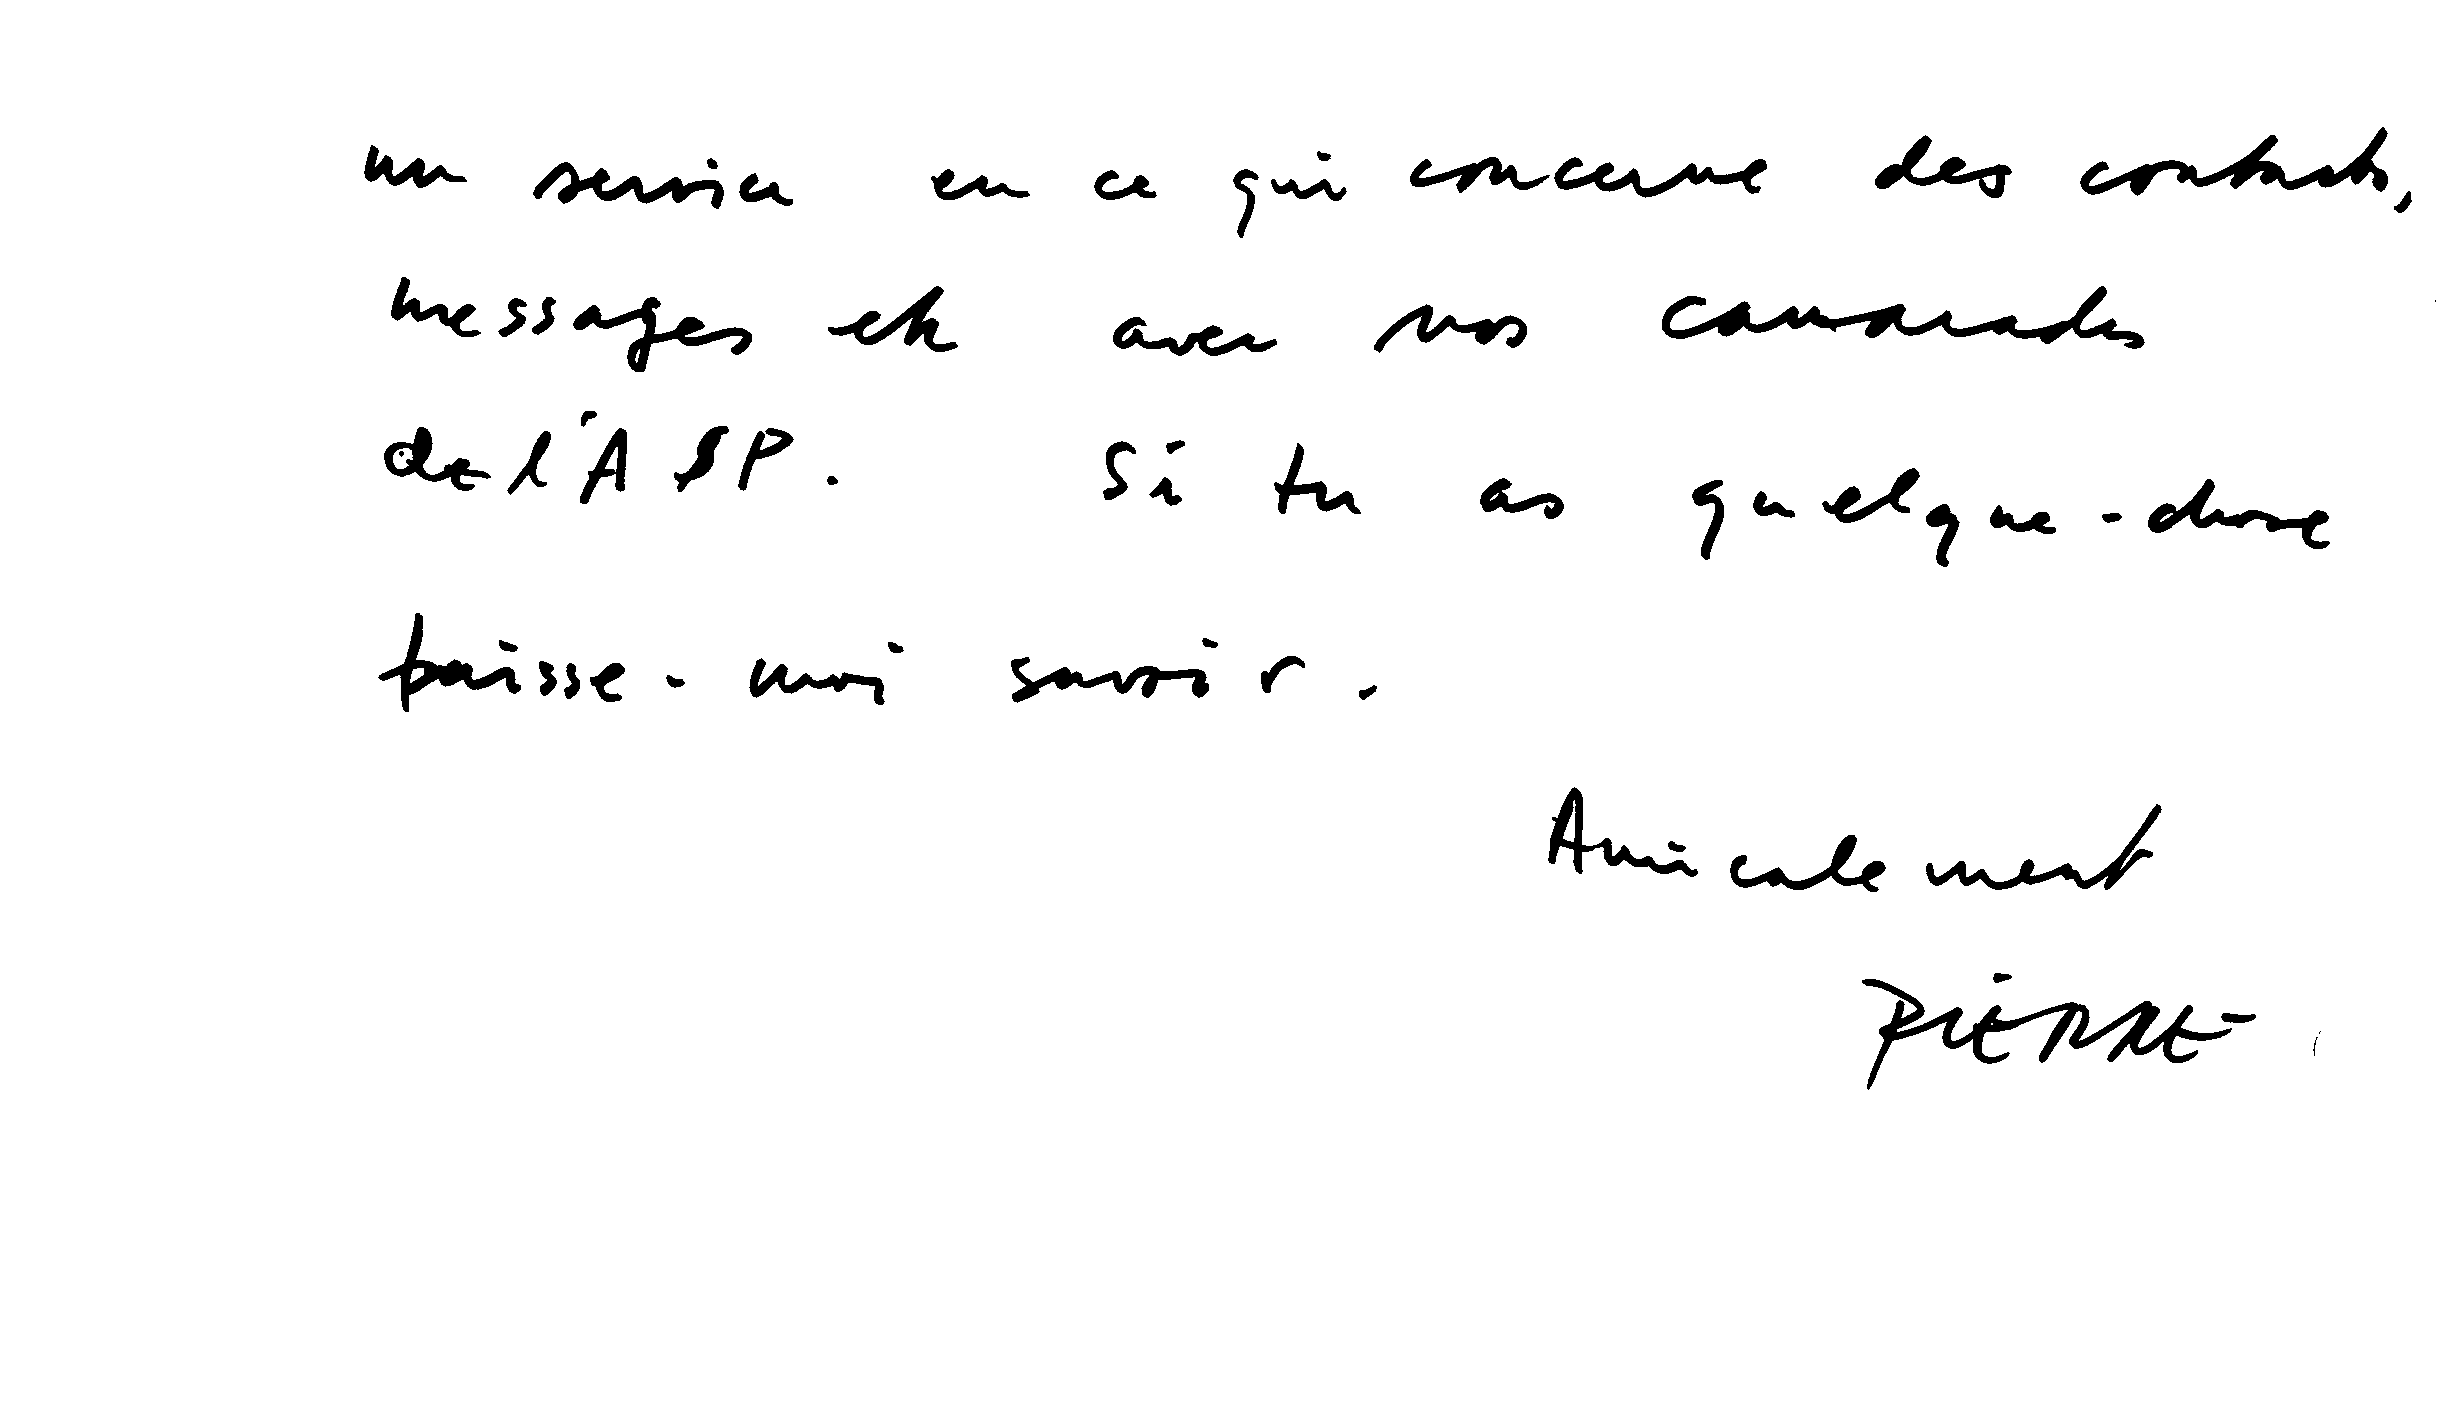 un service en ce qui concerne des contacts,
messages etc avec nos camarades
de l'ASP. Si tu as quelque-chose
faisse-moi savoir.
Amicalement
PIERRE